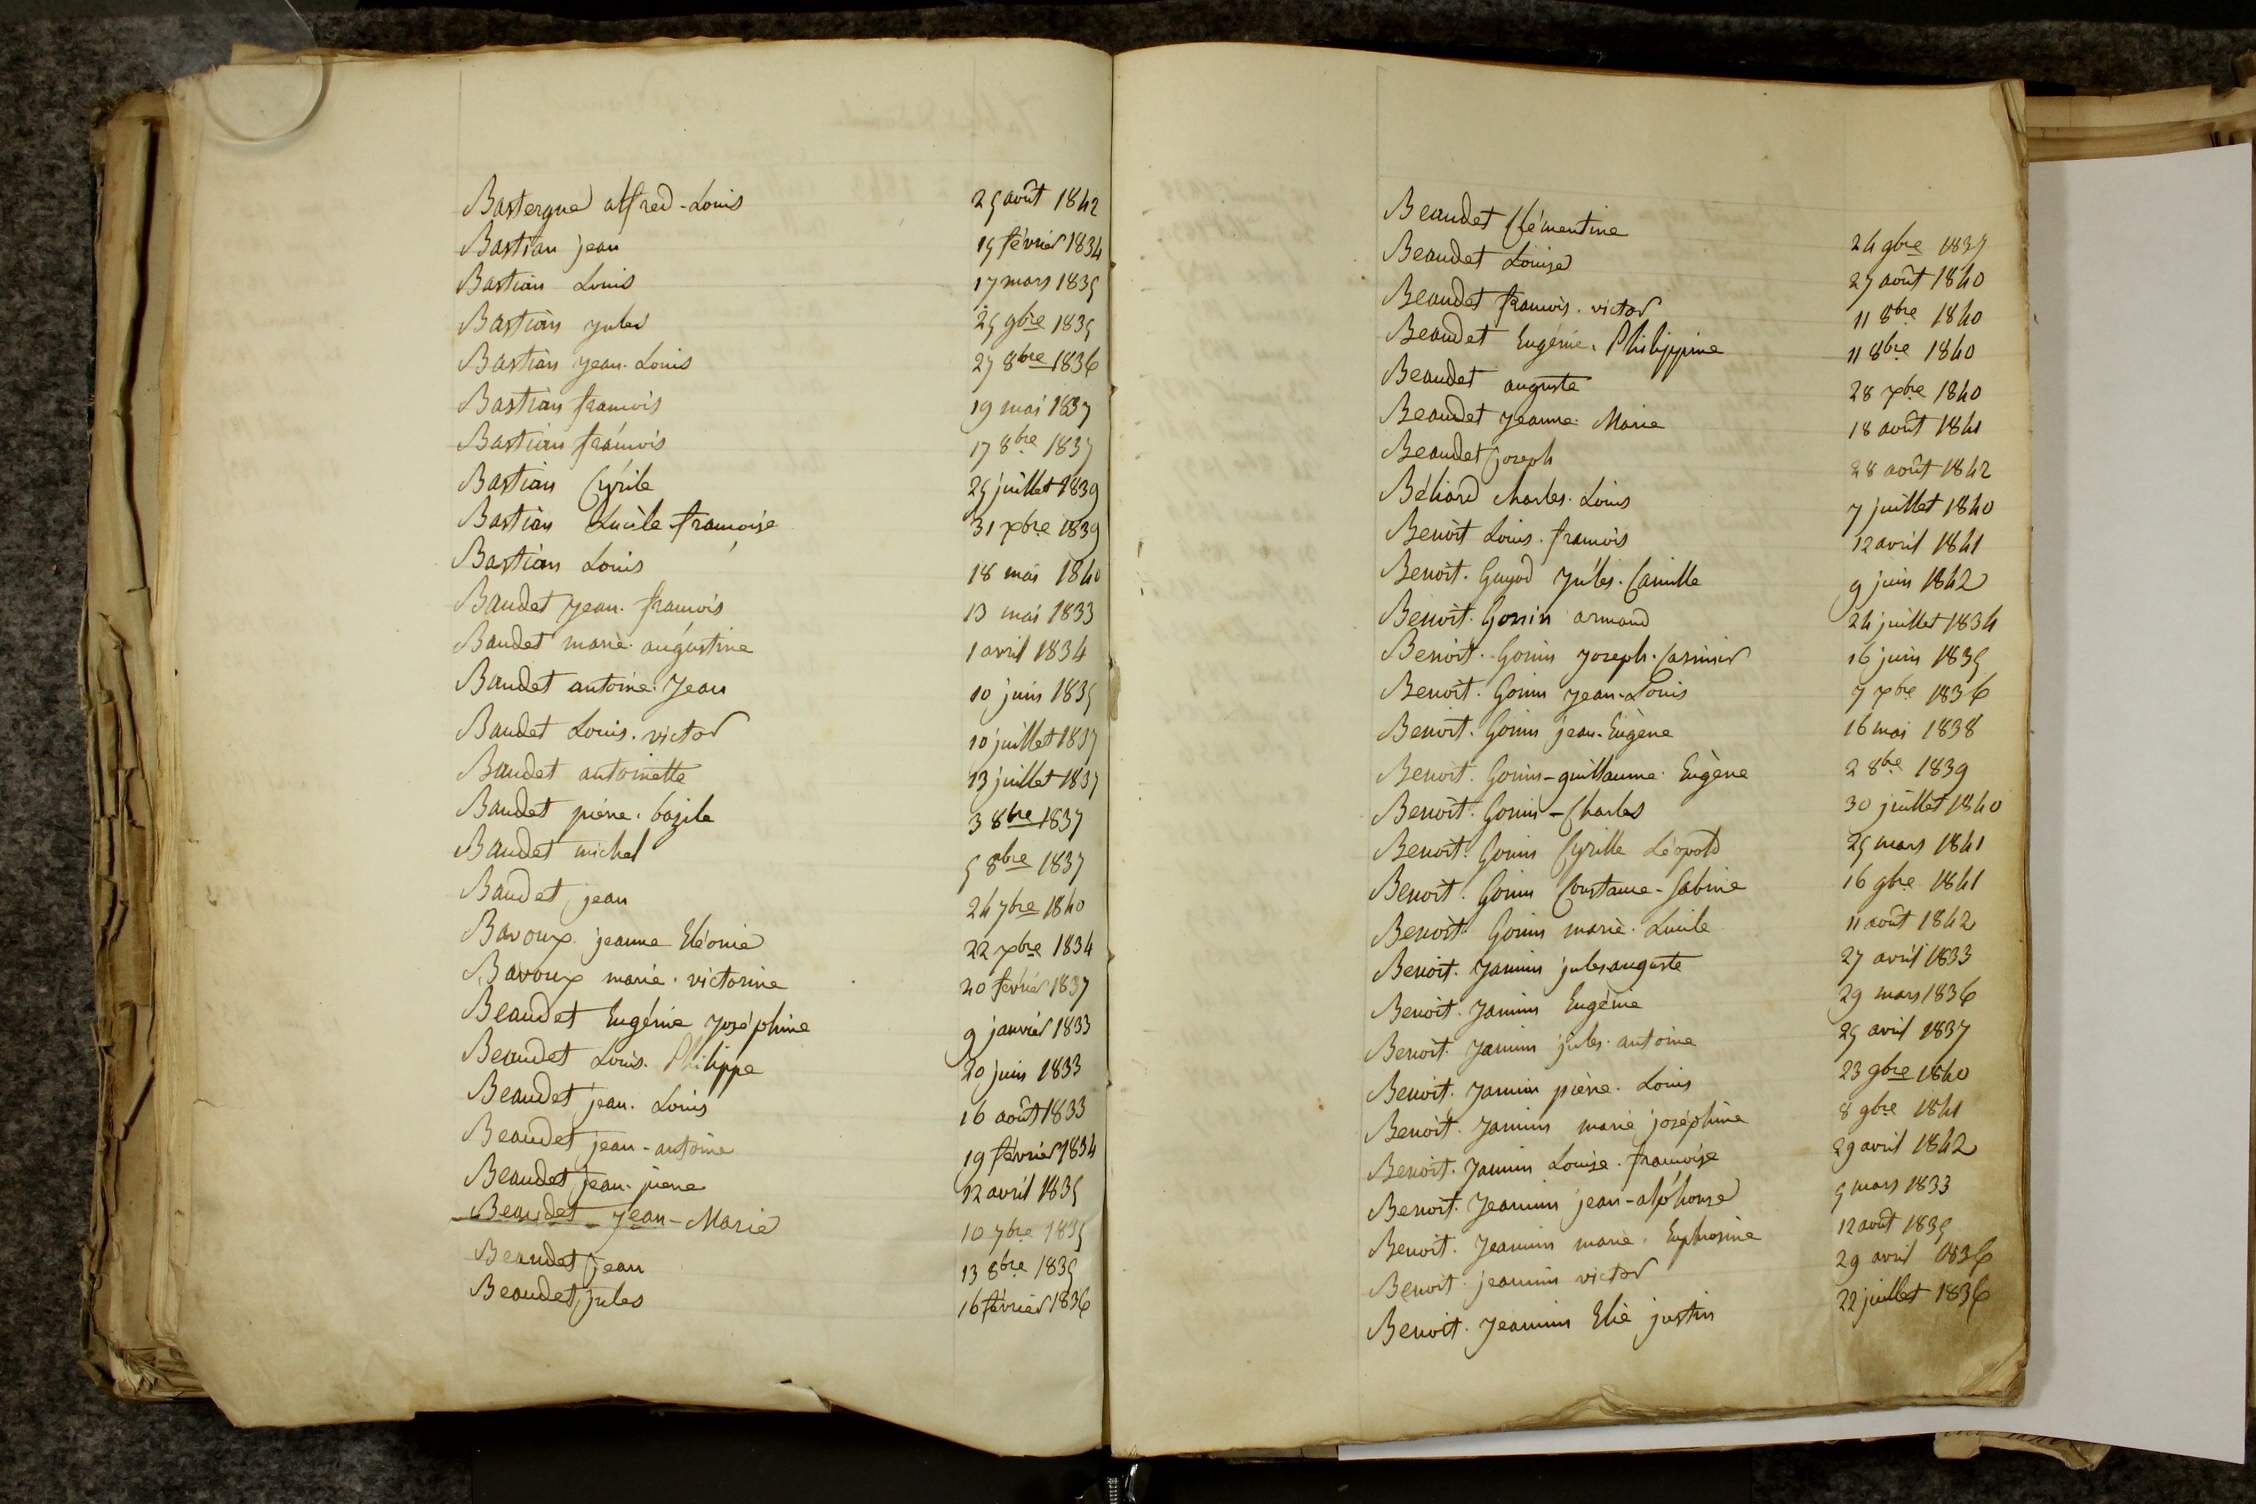 Bastergue alfred-Louis 25 août 1842
Bastian jean 15 février 1834
Bastian Louis 17 mars 1835
Bastian jules 25 9bre 1835
Bastian jean-Louis 27 8bre 1836
Bastian francois 19 mai 1837
Bastian francois 17 8bre 1837
Bastian Cyrile 25 juillet 1839
Bastian Lucile francoise 31 xbre 1839
Bastian Louis 18 mai 1840
Baudet jean-francois 13 mai 1833
Baudet marie-augustine 1 avril 1834
Baudet antoine-jean 10 juin 1835
Baudet Louis-victor 10 juillet 1837
Baudet antoinette 13 juillet 1837
Baudet pierre-bazile 3 8bre 1837
Baudet michel 5 8bre 1837
Baudet jean 24 7bre 1840
Bavoux jeanne Eléonie 22 xbre 1834
Bavoux marie-victorine 20 février 1837
Beaudet Eugénie Joséphine 9 janvier 1833
Beaudet Louis-Philippe 20 juin 1833
Beaudet jean-Louis 16 août 1833
Beaudet jean-antoine 19 février 1834
Beaudet jean-pierre 12 avril 1835
Beaudet jean-Marie 10 7bre 1835
Beaudet jean 13 8bre 1835
Beaudet jules 16 février 1836
Beaudet Clémentine 24 9bre 1837
Beaudet Louise 27 août 1840
Beaudet francois-victor 11 8bre 1840
Beaudet Eugénie-Philippine 11 8bre 1840
Beaudet auguste 28 xbre 1840
Beaudet jeanne-Marie 18 août 1841
Beaudet joseph 28 août 1842
Béliard charles-Louis 7 juillet 1840
Benoit Louis-francois 12 avril 1841
Benoit-Guyod jules-Camille 9 juin 1842
Benoit-Gonin armand 24 juillet 1834
Benoit-Gonin joseph-Casimir 16 juin 1835
Benoit-Gonin jean-Louis 7 xbre 1836
Benoit-Gonin jean-Eugène 16 mai 1838
Benoit-Gonin-guillaume-Eugène 2 8bre 1839
Benoit-Gonin-Charles 30 juillet 1840
Benoit-Gonin Cyrille Léopold 25 mars 1841
Benoit-Gonin Constance-Sabine 16 9bre 1841
Benoit-Gonin marie-Lucile 11 août 1842
Benoit-Jannin jules auguste 27 avril 1833
Benoit-Jannin Eugénie 29 mars 1836
Benoit-Jannin jules-antoine 25 avril 1837
Benoit-Jannin pierre-Louis 23 9bre 1840
Benoit-Jannin marie joséphine 8 9bre 1841
Benoit-Jannin Louise-francoise 29 avril 1842
Benoit-Jeannin jean-alphonse 5 mars 1833
Benoit-Jeannin marie-Euphrosine 12 août 1835
Benoit-jeannin victor 29 avril 1836
Benoit-Jeannin Elie justin 22 juillet 1836